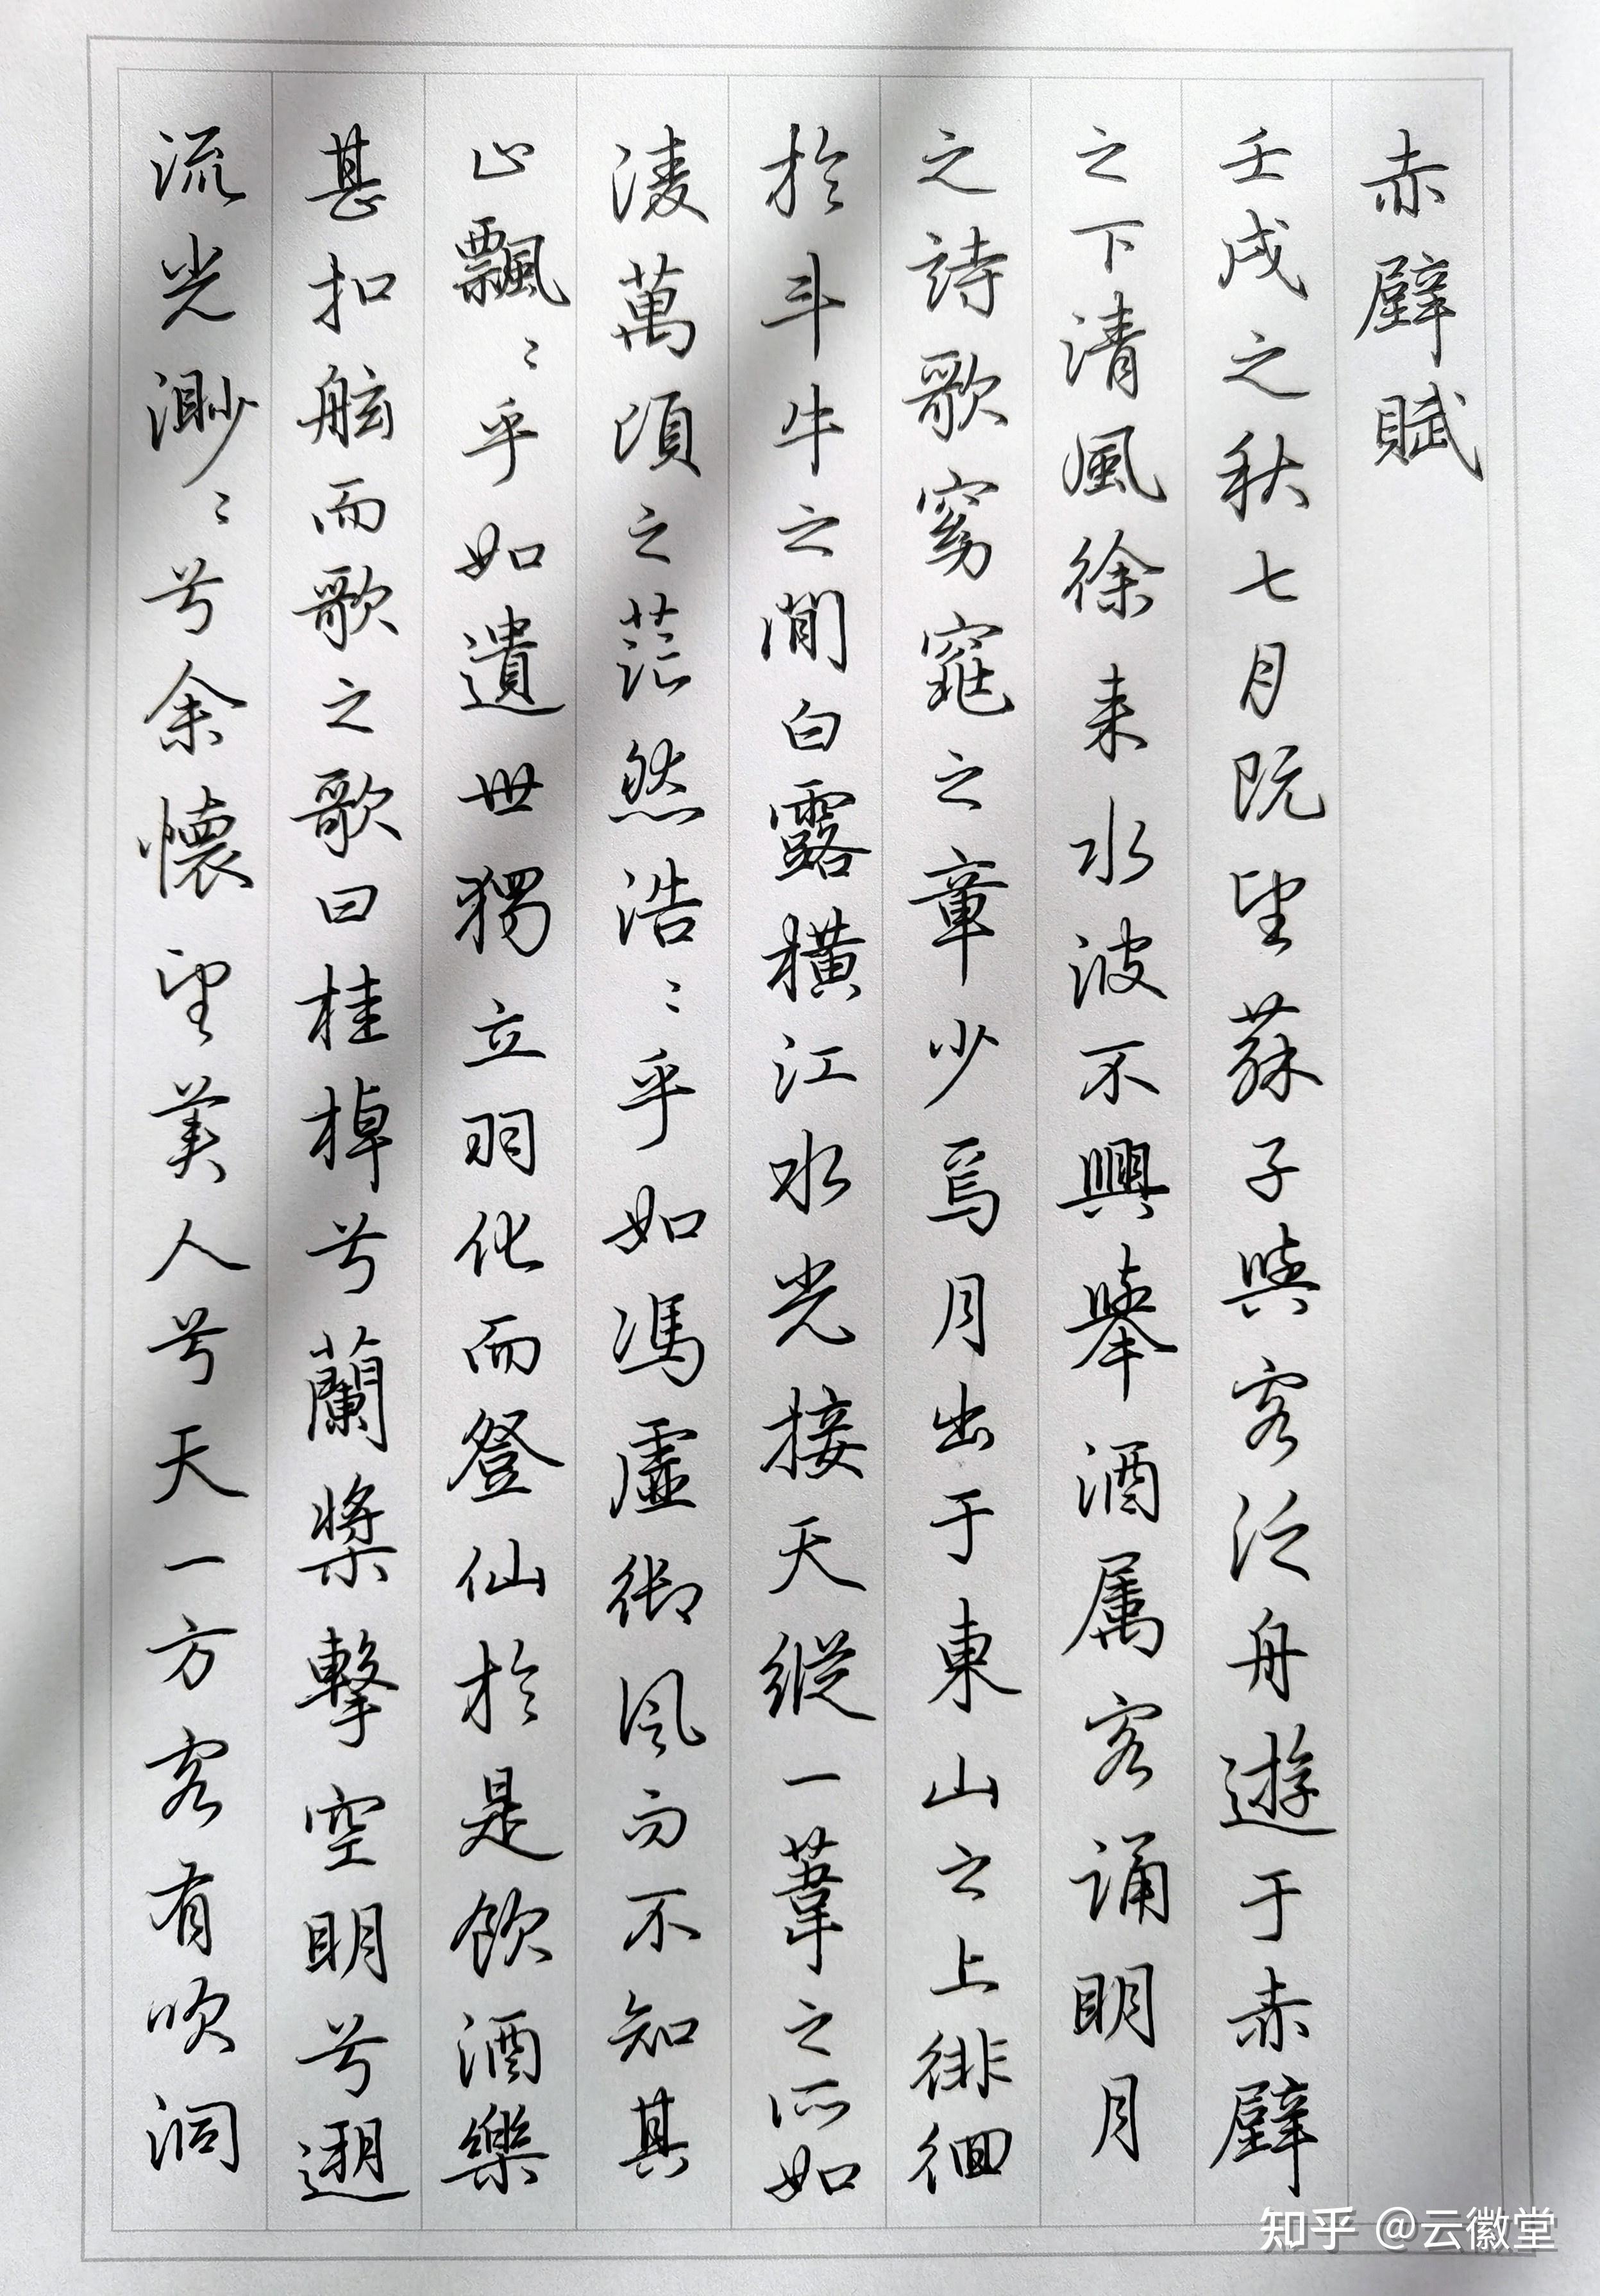 赤壁賦
壬戌之秋七月既望蘇子與客泛舟遊于赤壁
之下清風徐来水波不興舉酒属客誦明月
之詩歌窈窕之章少焉月出于東山之上徘徊
於斗牛之間白露橫江水光接天縱一葦之所如
淩萬頃之茫然浩〻乎如馮虛御風而不知其
止飄〻乎如遺世獨立羽化而登仙於是飲酒樂
甚扣舷而歌之歌曰桂棹兮蘭槳擊空明兮遡
流光渺〻兮余懷望美人兮天一方客有吹洞
知乎 @云徽堂